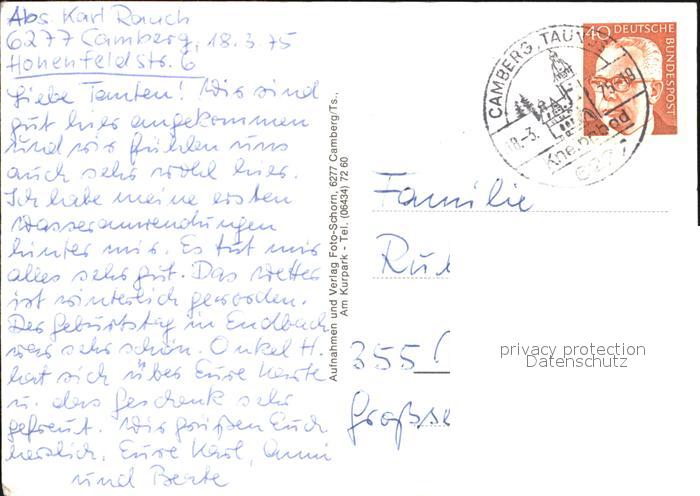 Abs. Karl Rauch
6277 Camberg, 18.3.75
Hohenfeldstr. 6
Liebe Tanten! Wir sind
gut hier angekommen
und wir fühlen uns
auch sehr wohl hier.
Ich habe meine ersten
Wasseranwendungen
hinter mir. Es tut mir
alles sehr gut. Das Wetter
ist winterlich geworden.
Der Geburtstag in Endbach
war sehr schön. Onkel H.
hat sich über Eure Karte
u. das Geschenk sehr
gefreut. Wir grüßen Euch
herzlich. Eure Karl, Anni
und Beate
Aufnahmen und Verlag Foto-Schorn, 6277 Camberg/Ts.,
Am Kurpark - Tel. (06434) 72 60
CAMBERG, TAUNUS
18.-3. 75-18
Kneippbad
6277
40 DEUTSCHE
BUNDESPOST
Familie
Ru
355
Großse
privacy protection
Datenschutz